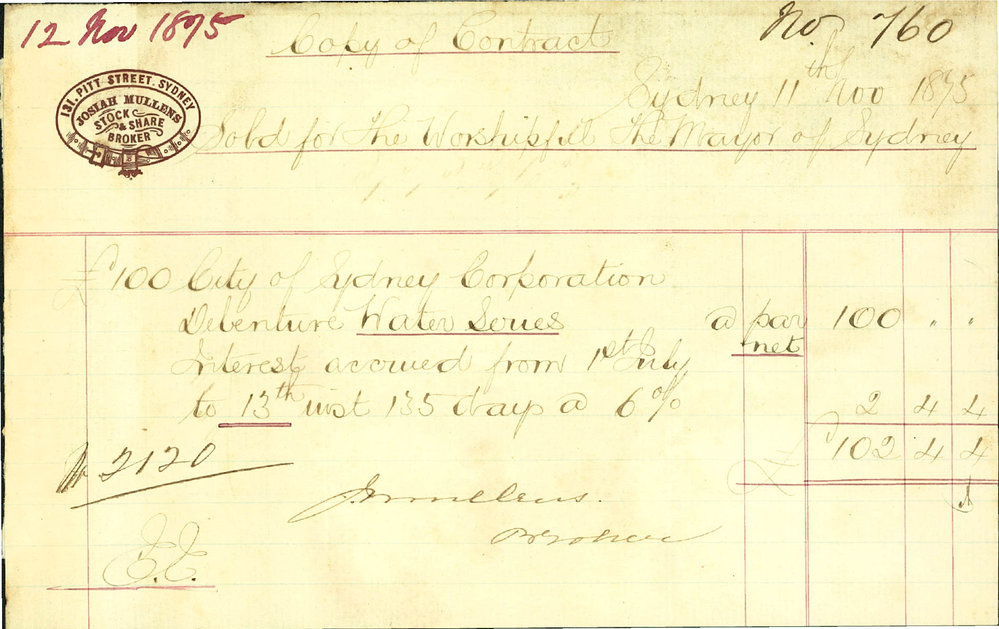 12 Nov 1875
Copy of Contract
No 760
131. PITT STREET. SYDNEY
JOSIAH MULLENS
STOCK
& SHARE
BROKER
Sydney 11th Nov 1875
Sold for The Worshipful The Mayor of Sydney
£100 City of Sydney Corporation
Debenture Water Series @ par net 100 " "
Interest accrued from 1st July
to 13th inst 135 days @ 6 % 2 4 4
£ 102 4 4
2120
J Mullens.
Broker
E.E.